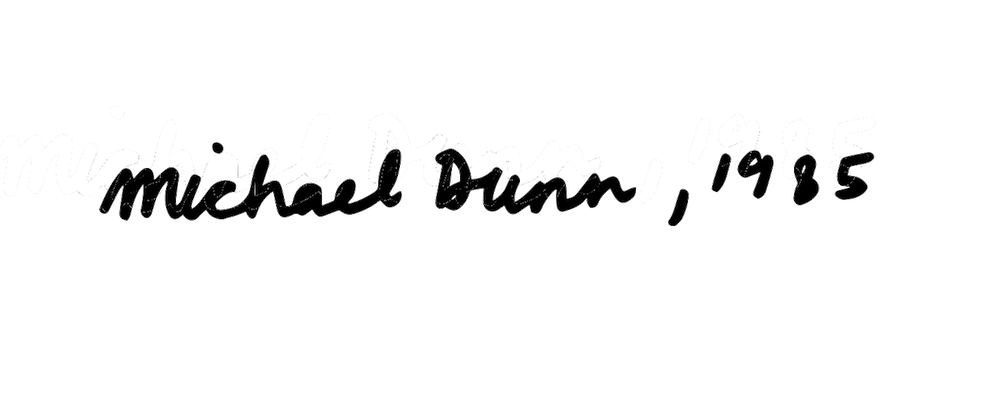 Michael Dunn, 1985